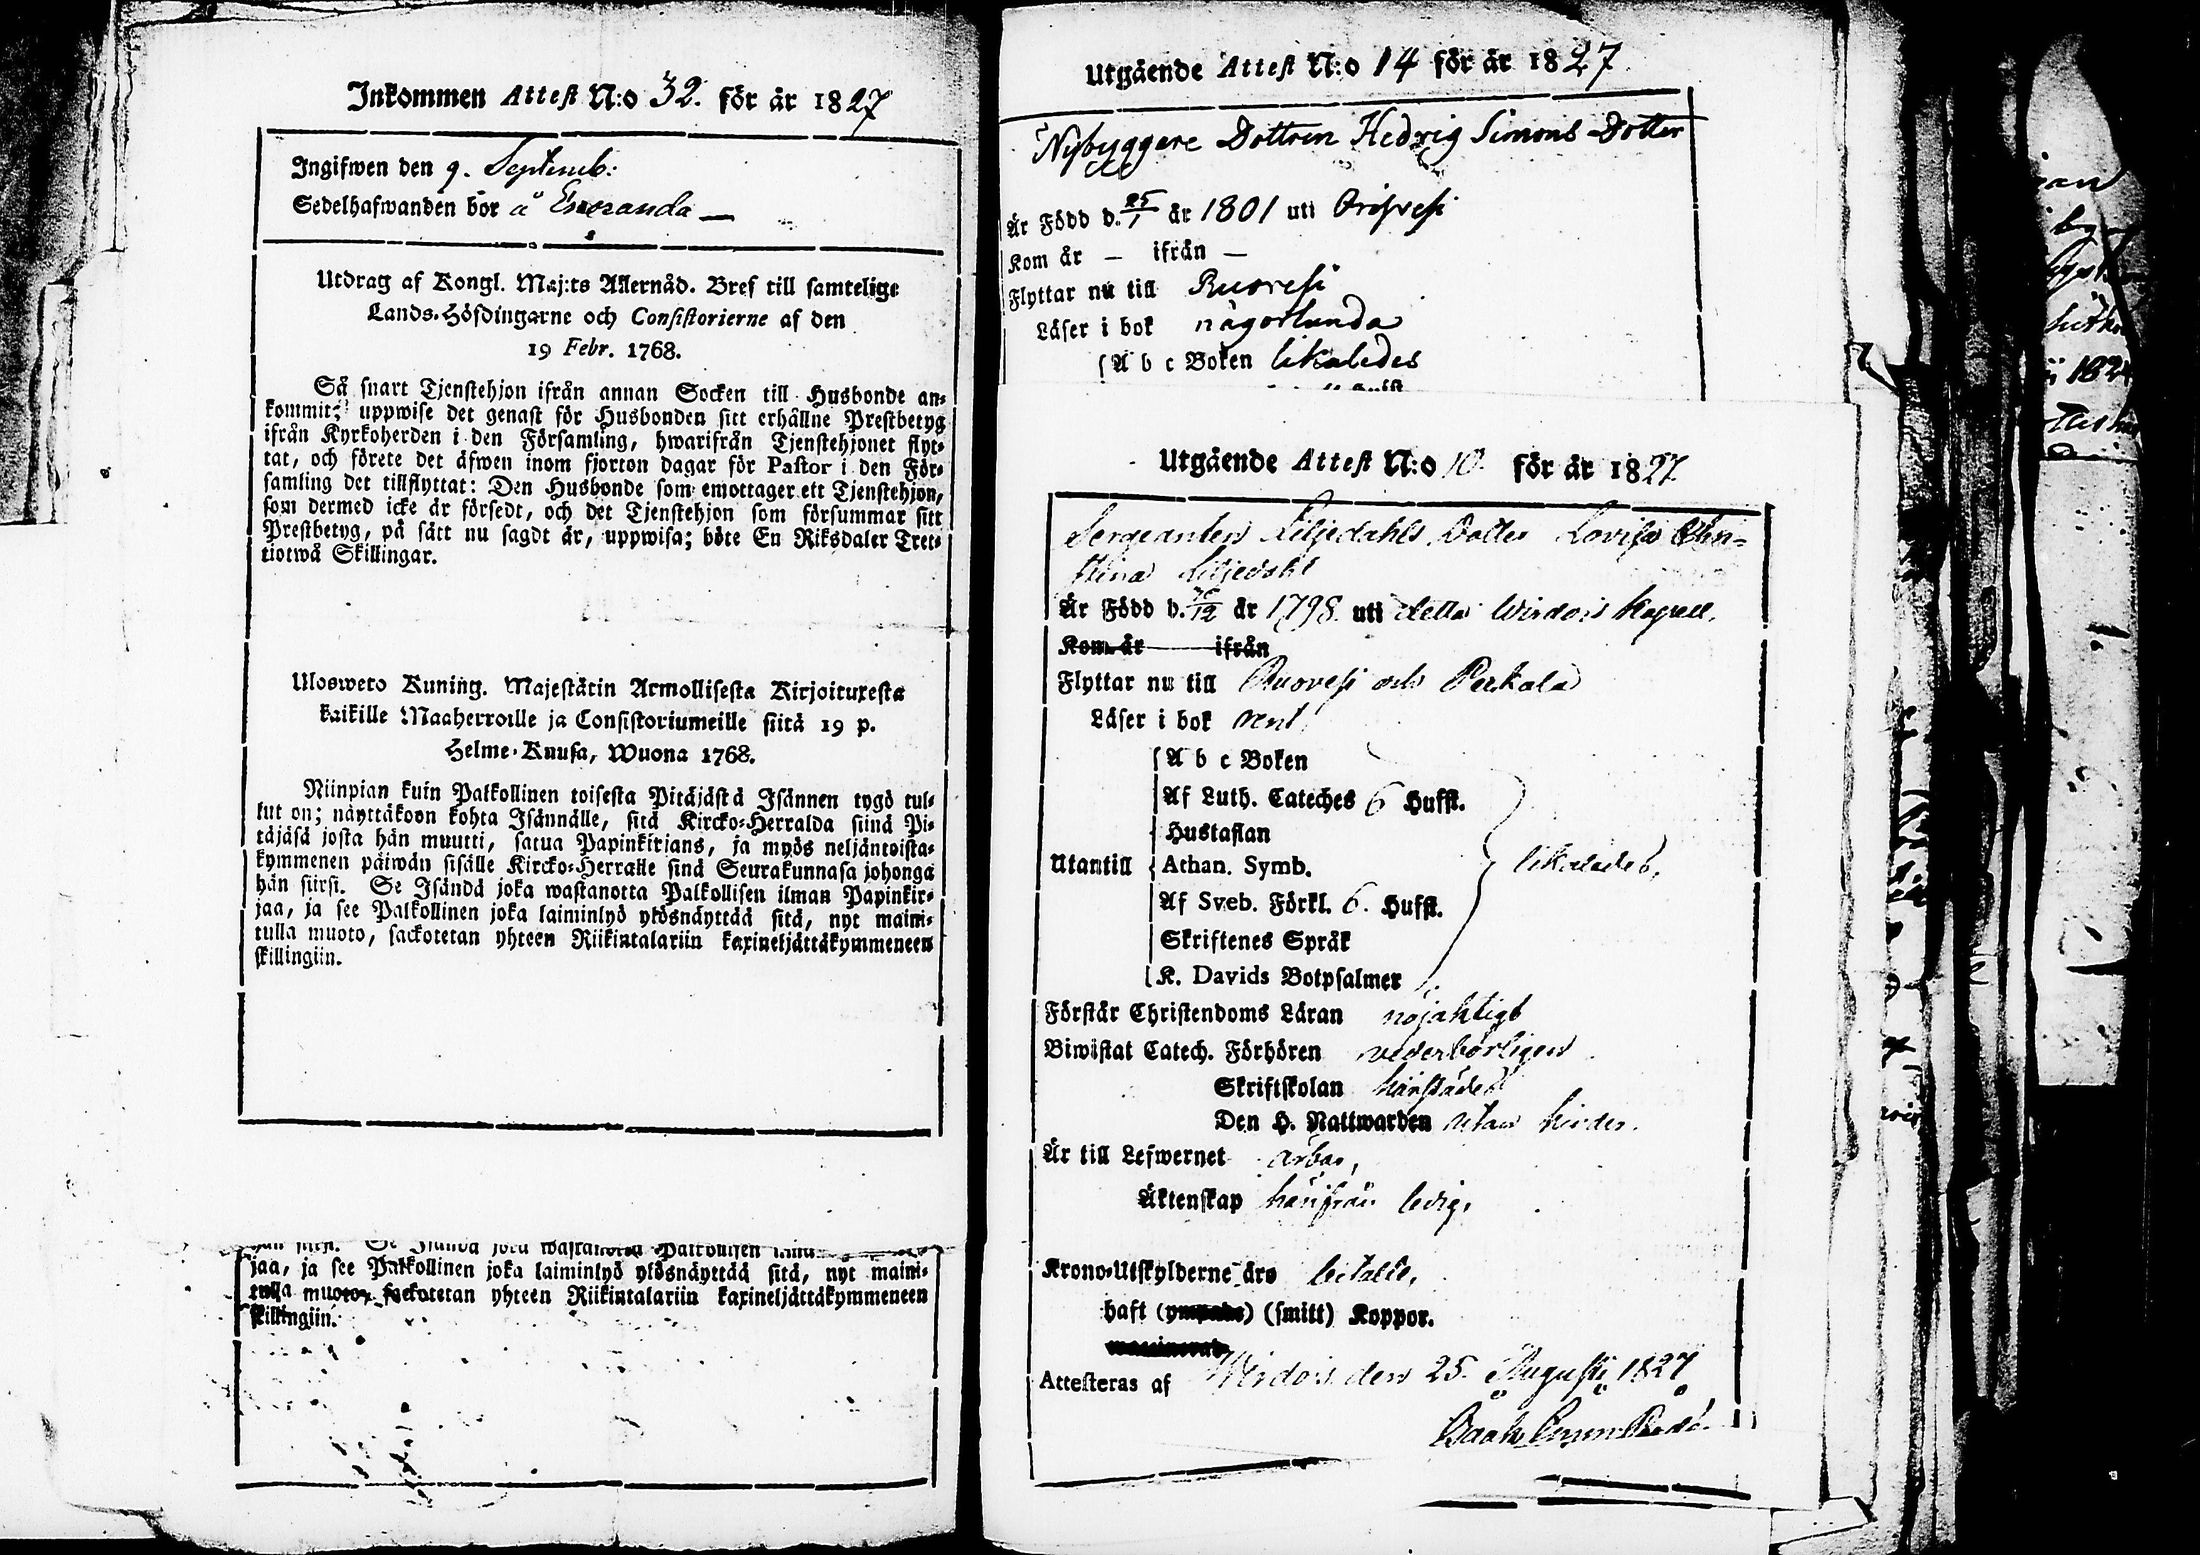 Inkommen Attest N:o 32. för år 1827
Ingifwen den 9. Septemb:
Sedelhafwanden bor å
Utdrag af Kongl. Maj:ts Allernåd. Bref till samtelige
Lands-Höfdingarne och Consistorierne af den
19 Febr. 1768.
Så snart Tjenstehjon ifrån annan Socken till Husbonde an-
kommit; uppwise det genast för Husbonden sitt erhållne Prestbetyg
ifrån Kyrkoherden i den Församling, hwarifrån Tjenstehjonet flyt-
tat, och förete det äfwen inom fjorton dagar för Pastor i den För-
samling det tillflyttat: Den Husbonde som emottager ett Tjenstehjon,
som dermed icke är försedt, och det Tjenstehjon som försummar sitt
Prestbetyg, på sätt nu sagdt är, uppwisa; böte En Riksdaler Tret-
tiotwå Skillingar.
Ulosweto Kuning. Majestätin Armollisesta Kirjoituxesta
kaikille Maaherroille ja Consistoriumeille siitä 19 p.
Helme-Kuusa, Wuona 1768.
Niinpian kuin Palkollinen toisesta Pitäjästä Isännen tygö tul-
lut on; näyttäkoon kohta Isännälle, sitä Kircko-Herralda siinä Pi-
täjäsä josta hän muutti, satua Papinkirjans, ja myös neljäntoista-
kymmenen päiwän sisälle Kircko-Herralle sinä Seurakunnasa johonga
hän siirsi. Se Isändä joka wastanotta Palkollisen ilman Papinkir-
jaa, ja see Palkollinen joka laiminlyö ylösnäyttää sitä, nyt maini-
tulla muoto, sackotetan yhteen Riikintalariin kaxineljättäkymmeneen
skillingiin.
hän siirsi. Se Isändä joka wastanotta Palkollisen
jaa, ja see Palkollinen joka laiminlyö ylösnäyttää sitä, nyt maini-
tulla muoto, sackotetan yhteen Riikintalariin kaxineljättäkymmeneen
skillingiin.
Utgående Attest N:o 14 för år 1827
Nybyggare Dottren Hedvig Simons Dotter
Är Född d. 25/1 år 1801 uti Orihvesi
Kom år – ifrån –
Flyttar nu till Ruovesi
Läser i bok någorlunda
A b c Boken likaledes
Utgående Attest N:o 10. för år 1827
Sergeanten Liljedahls Dotter Lovisa Chri-
stina Liljedahl
Är Född d. /12 år 1798. uti detta Wirdois Kapell.
Kom år ifrån
Flyttar nu till Ruovesi och Perkala
Läser i bok rent
A b c Boken
Af Luth. Cateches 6 Hufst.
Hustaflan
Utantill Athan. Symb. likaledes,
Af Sveb. Förkl. 6. Hufst.
Skriftenes Språk
K. Davids Botpsalmer
Förstår Christendoms Läran nöjaktigt
Biwistat Catech. Förhören vederbörligen
Skriftskolan härstädes
Den H. Nattwarden utan hinder.
Är till Lefwernet ärbar,
Äktenskap härifrån ledig,
Krono-Utskylderne äro betalte,
haft (ympade) (smitt) Koppor.
Attesteras af Wirdois den 25. Augusti 1827